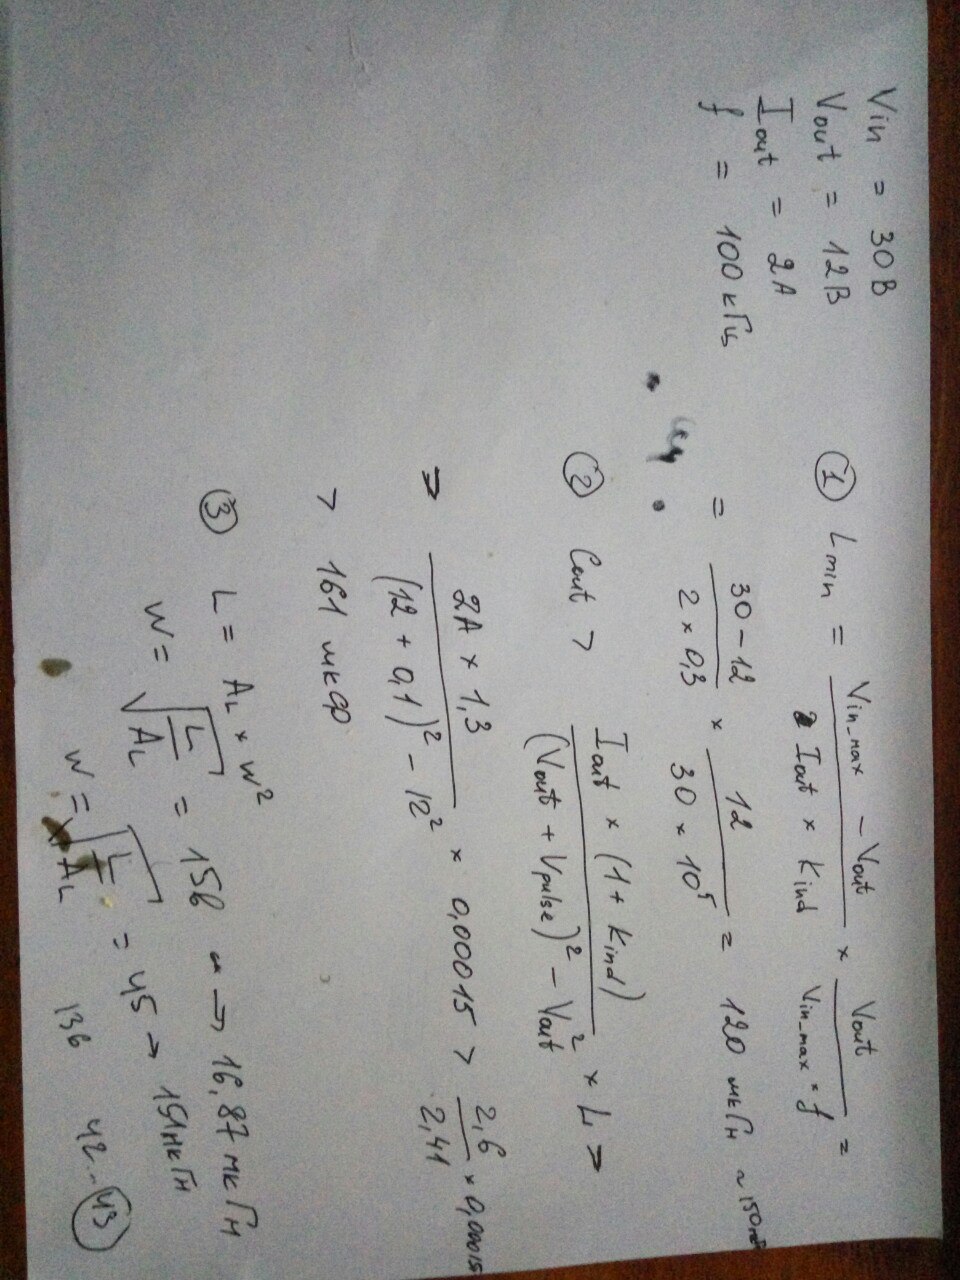 Vin = 30В
Vout = 12В
Iout = 2А
f = 100 кГц
① Lmin = (Vin_max − Vout) / (Iout × Kind) × Vout / (Vin_max · f) =
= (30 − 12) / (2 × 0,3) × 12 / (30 × 10⁵) = 120 мкГн ~ 150
② Cout > Iout × (1 + Kind) / ((Vout + Vpulse)² − Vout²) × L >
> 2А × 1,3 / ((12 + 0,1)² − 12²) × 0,00015 > 2,6 / 2,41 × 0,00015
> 161 мкФ
③ L = AL × W²
W = √(L / AL) = 15в → 16,87 мкГн
W = √(L / AL) = 45 → 151 мкГн
13в 42 - 43